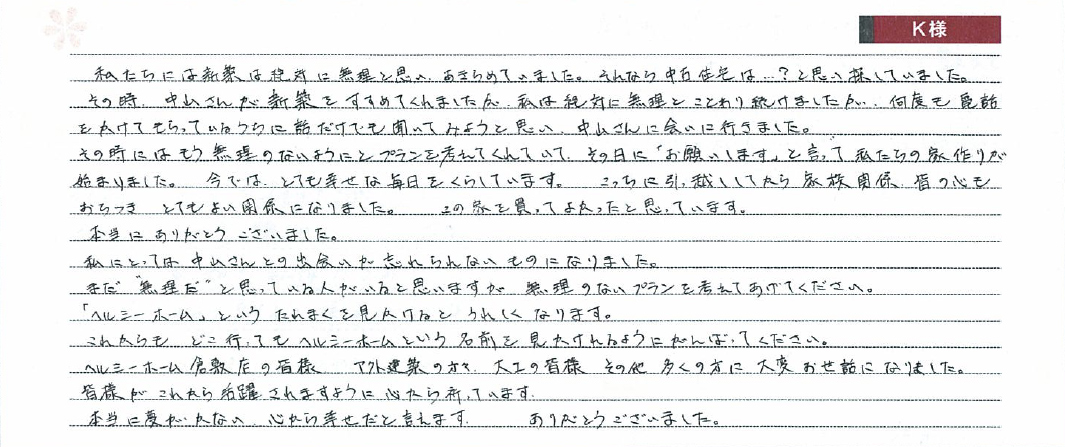 K様
私たちには新築は絶対に無理と思い、あきらめていました。それなら中古住宅は…?と思い探していました。
その時、中山さんが新築をすすめてくれましたが、私は絶対に無理とことわり続けましたが、何度も電話
をかけてもらっているうちに話だけでも聞いてみようと思い、中山さんに会いに行きました。
その時にはもう無理のないようにとプランを考えてくれていて、その日に「お願いします」と言って私たちの家作りが
始まりました。 今では、とても幸せな毎日をくらしています。 こっちに引っ越ししてから家族関係、皆の心も
おちつき とてもよい関係になりました。 この家を買ってよかったと思っています。
本当にありがとうございました。
私にとっては中山さんとの出会いが忘れられないものになりました。
まだ"無理だ"と思っている人がいると思いますが 無理のないプランを考えてあげてください。
「ヘルシーホーム」という たれまくを見かけると うれしくなります。
これからも どこ行ってもヘルシーホームという名前を見かけれるようにがんばってください。
ヘルシーホーム倉敷店の皆様 アフト建築の方々 大工の皆様 その他 多くの方に 大変お世話になりました。
皆様がこれから活躍されますように心から祈っています。
本当に夢がかない、心から幸せだと言えます。 ありがとうございました。